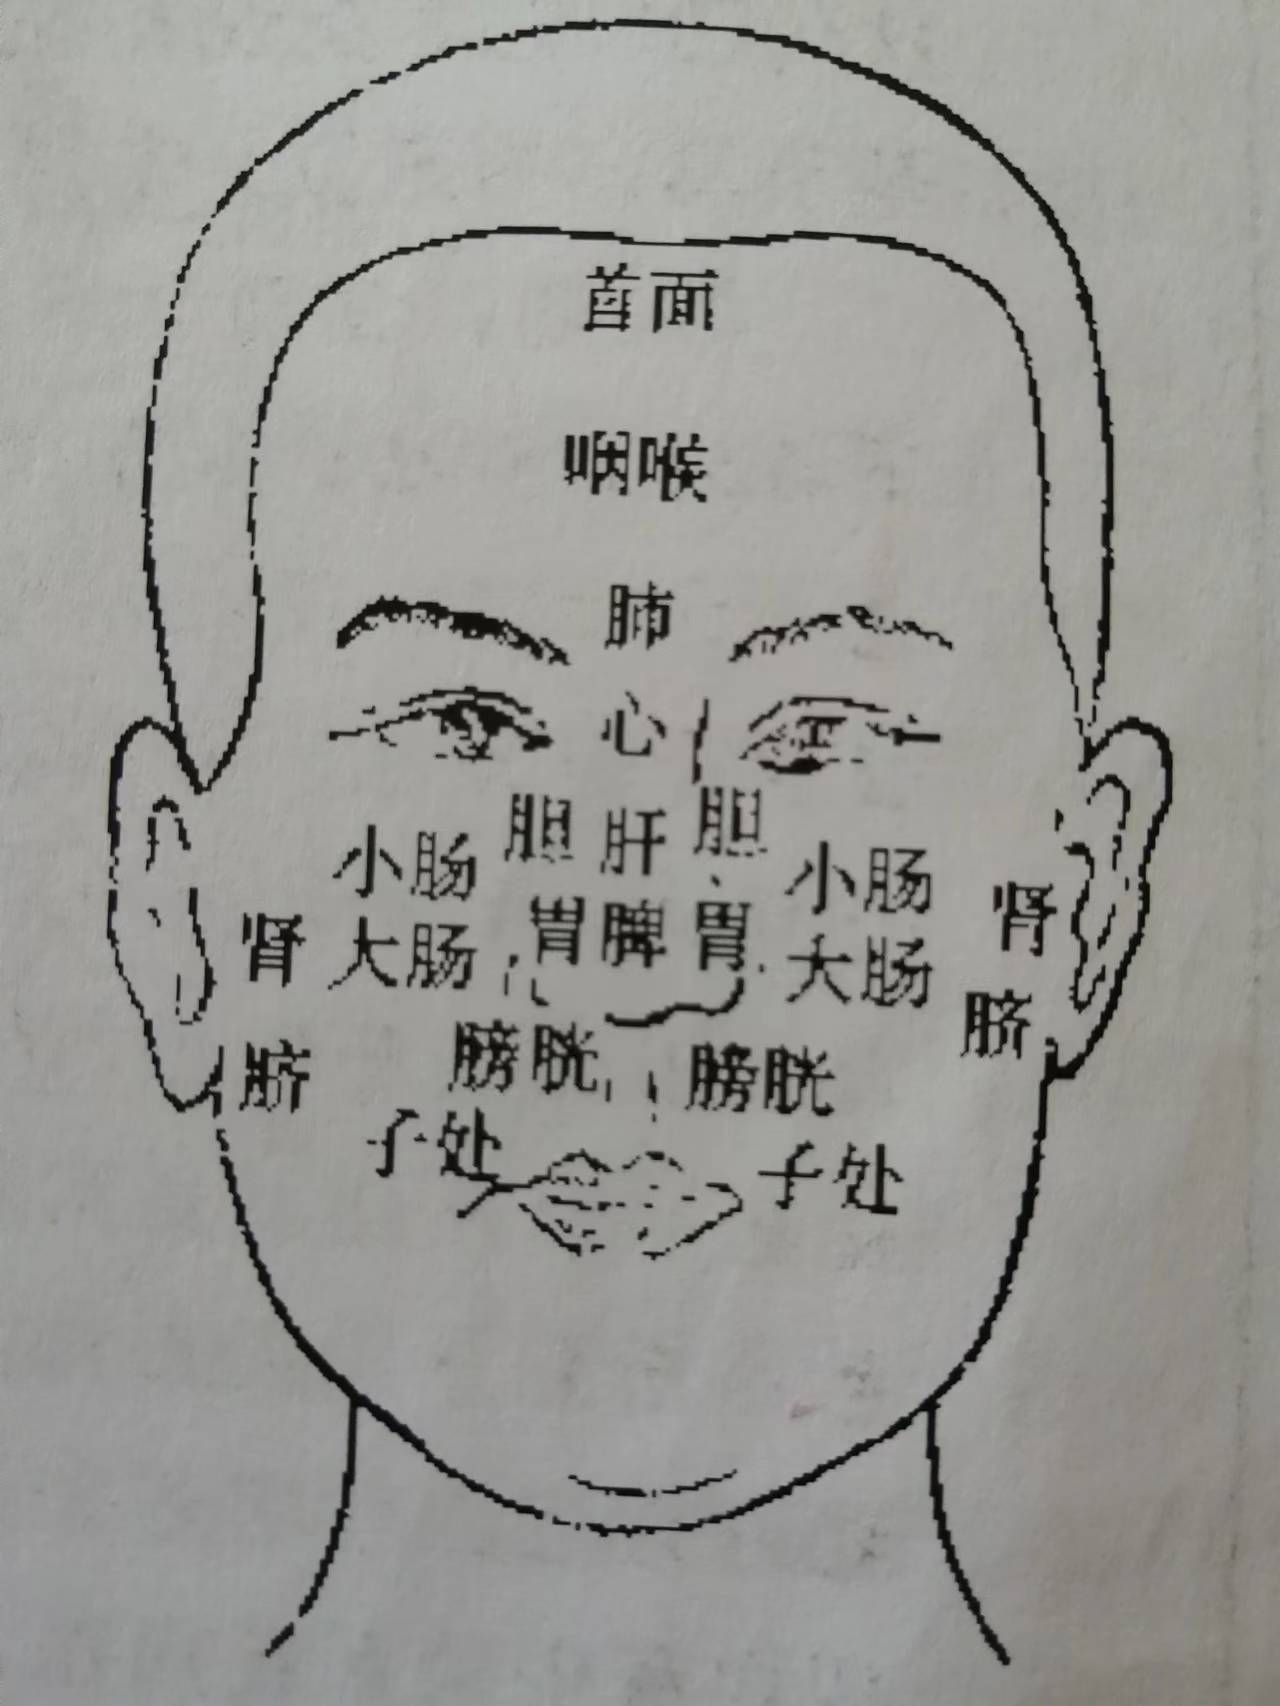 首面
咽喉
肺
心
胆 肝 胆
小肠 小肠
胃 脾 胃
肾 大肠 大肠 肾
脐 膀胱 膀胱 脐
子处 子处